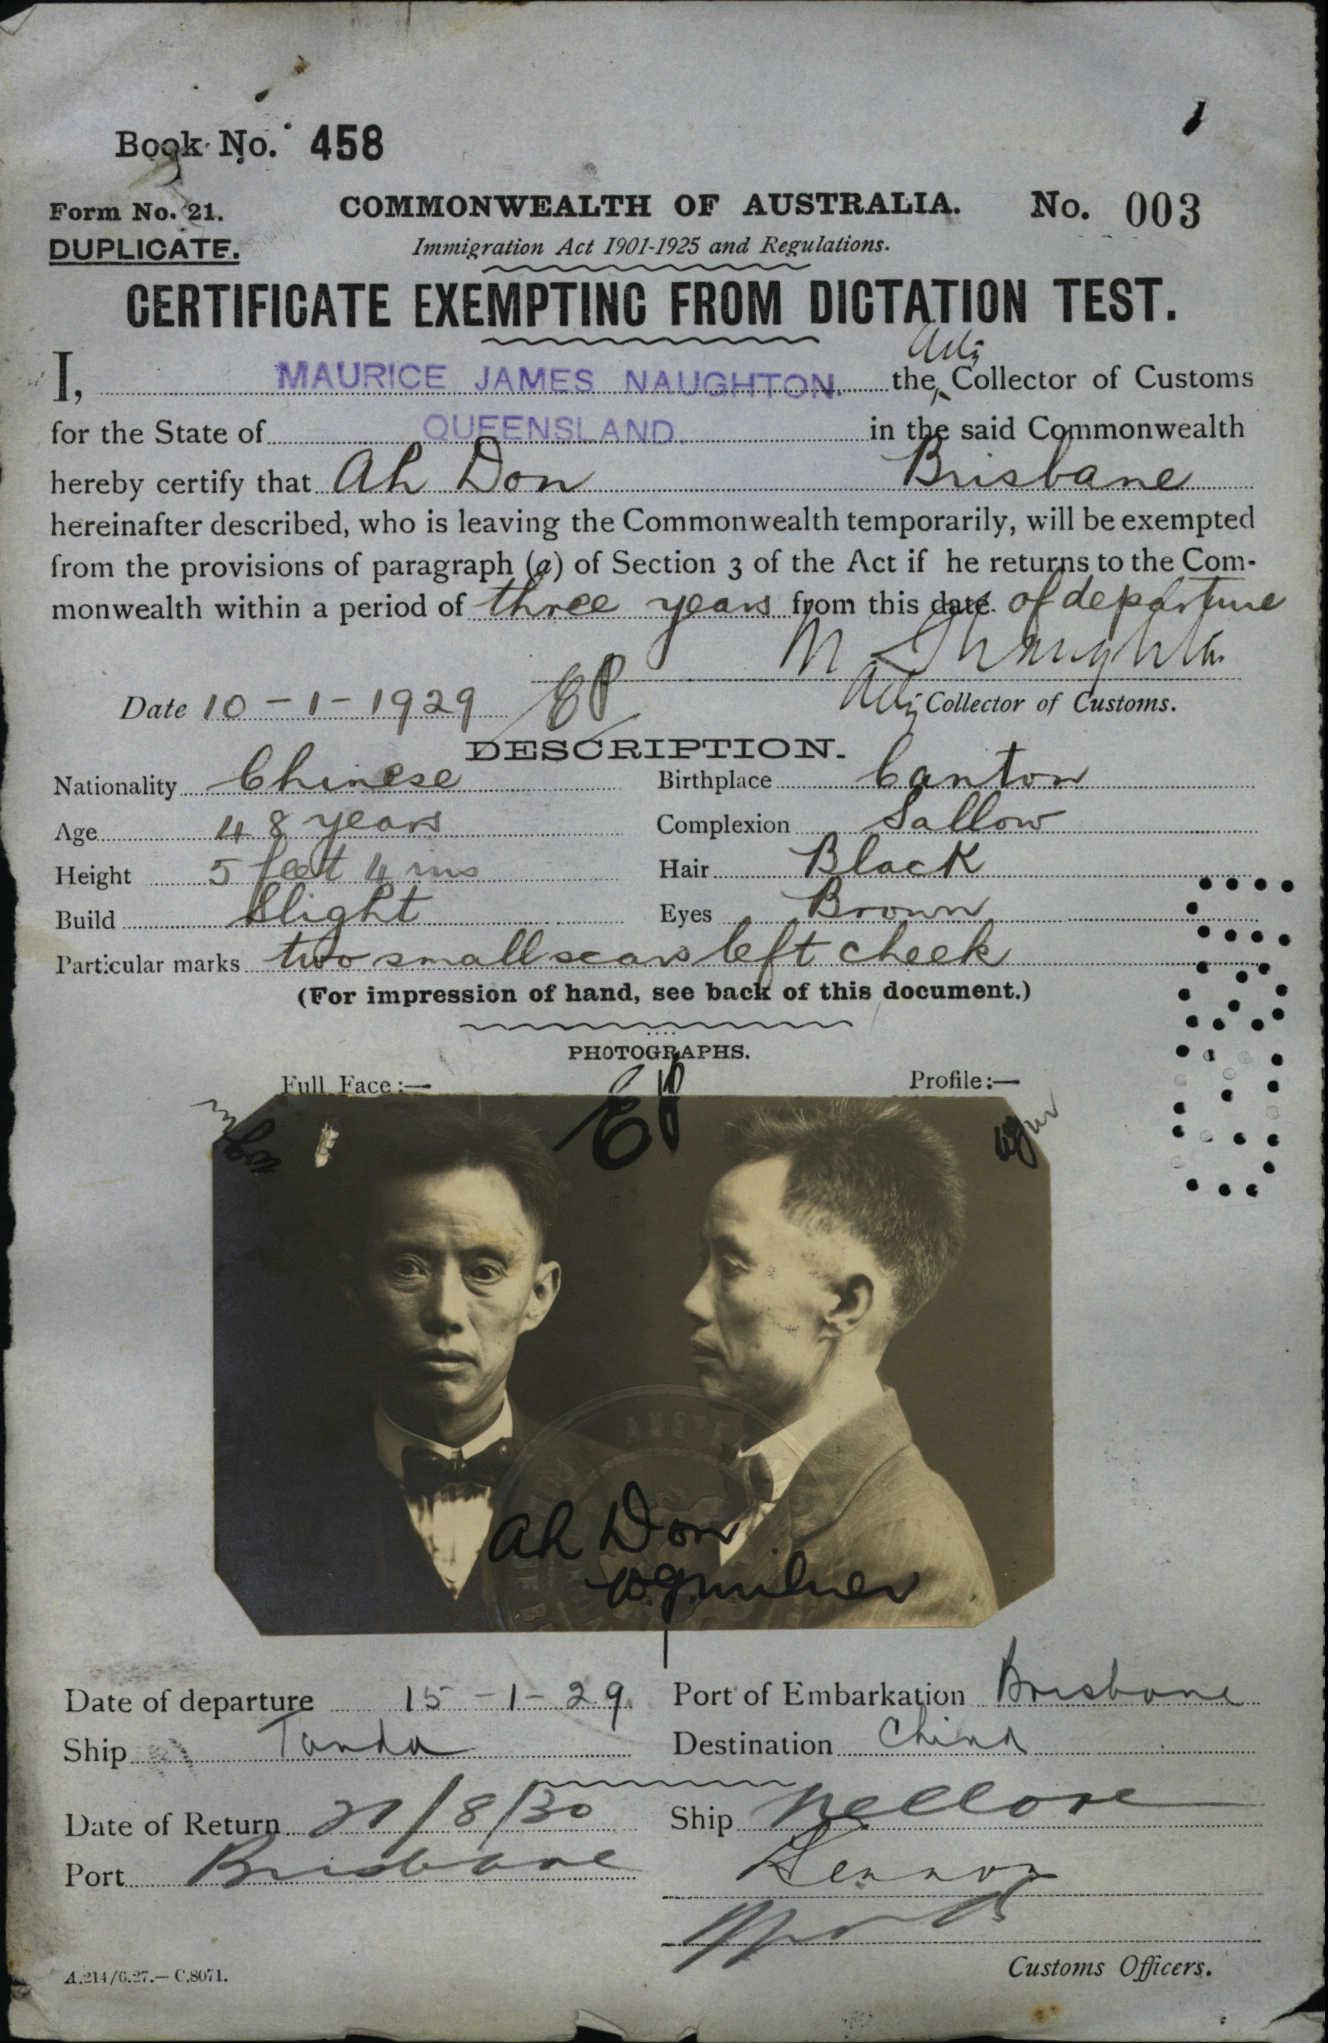 Book No. 458
Form No. 21.
COMMONWEALTH OF AUSTRALIA.
No. 003
DUPLICATE.
Immigration Act 1901-1925 and Regulations.
CERTIFICATE EXEMPTING FROM DICTATION TEST.
I, MAURICE JAMES NAUGHTON. the Actg Collector of Customs
for the State of QUEENSLAND. in the said Commonwealth
hereby certify that Ah Don Brisbane
hereinafter described, who is leaving the Commonwealth temporarily, will be exempted
from the provisions of paragraph (a) of Section 3 of the Act if he returns to the Com-
monwealth within a period of three years from this date of departure
M J Naughton
Date 10-1-1929 EP
Actg Collector of Customs.
DESCRIPTION.
Nationality Chinese Birthplace Canton
Age 48 years Complexion Sallow
Height 5 feet 4 ins Hair Black
Build Slight Eyes Brown
Particular marks two small scars left cheek
(For impression of hand, see back of this document.)
PHOTOGRAPHS.
Full Face :— Profile :—
EP
wgm wgm
Ah Don
W.G. Milner
Date of departure 15-1-29 Port of Embarkation Brisbane
Ship Tanda Destination China
Date of Return 21/8/30 Ship Nellore
Port Brisbane
Lennon
Customs Officers.
A.214/6.27.— C.8071.